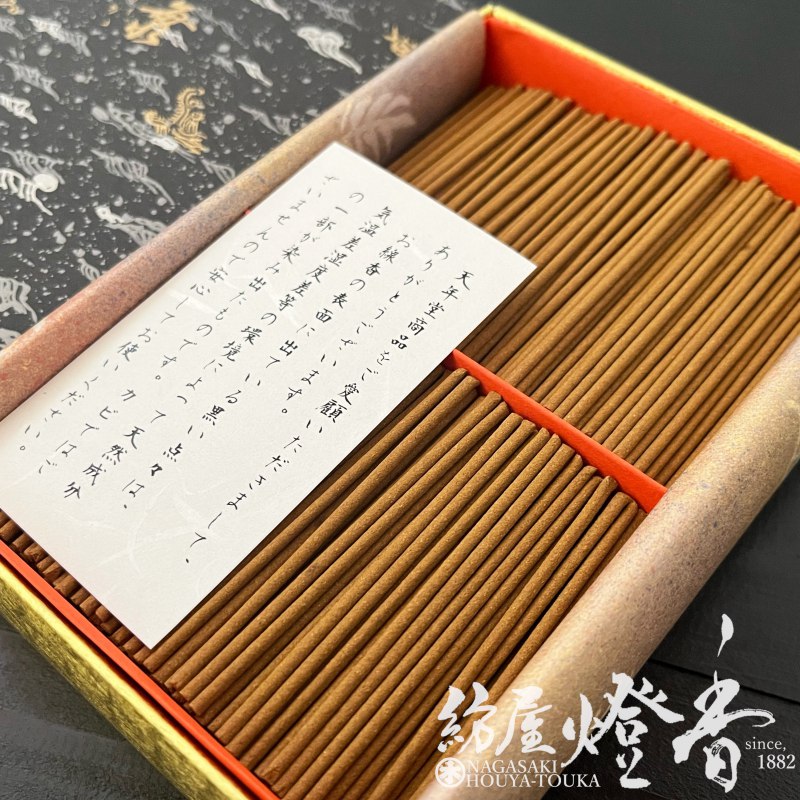 天年堂商品をご愛願いただきまして、
ありがとうございます。
お線香の表面に出ている黒い点々は、
気温差湿度差等の環境によって天然成分
の一部が染み出たものです。カビではご
ざいませんので安心してお使いください。
紡屋燈香
since,
1882
NAGASAKI
HOUYA-TOUKA